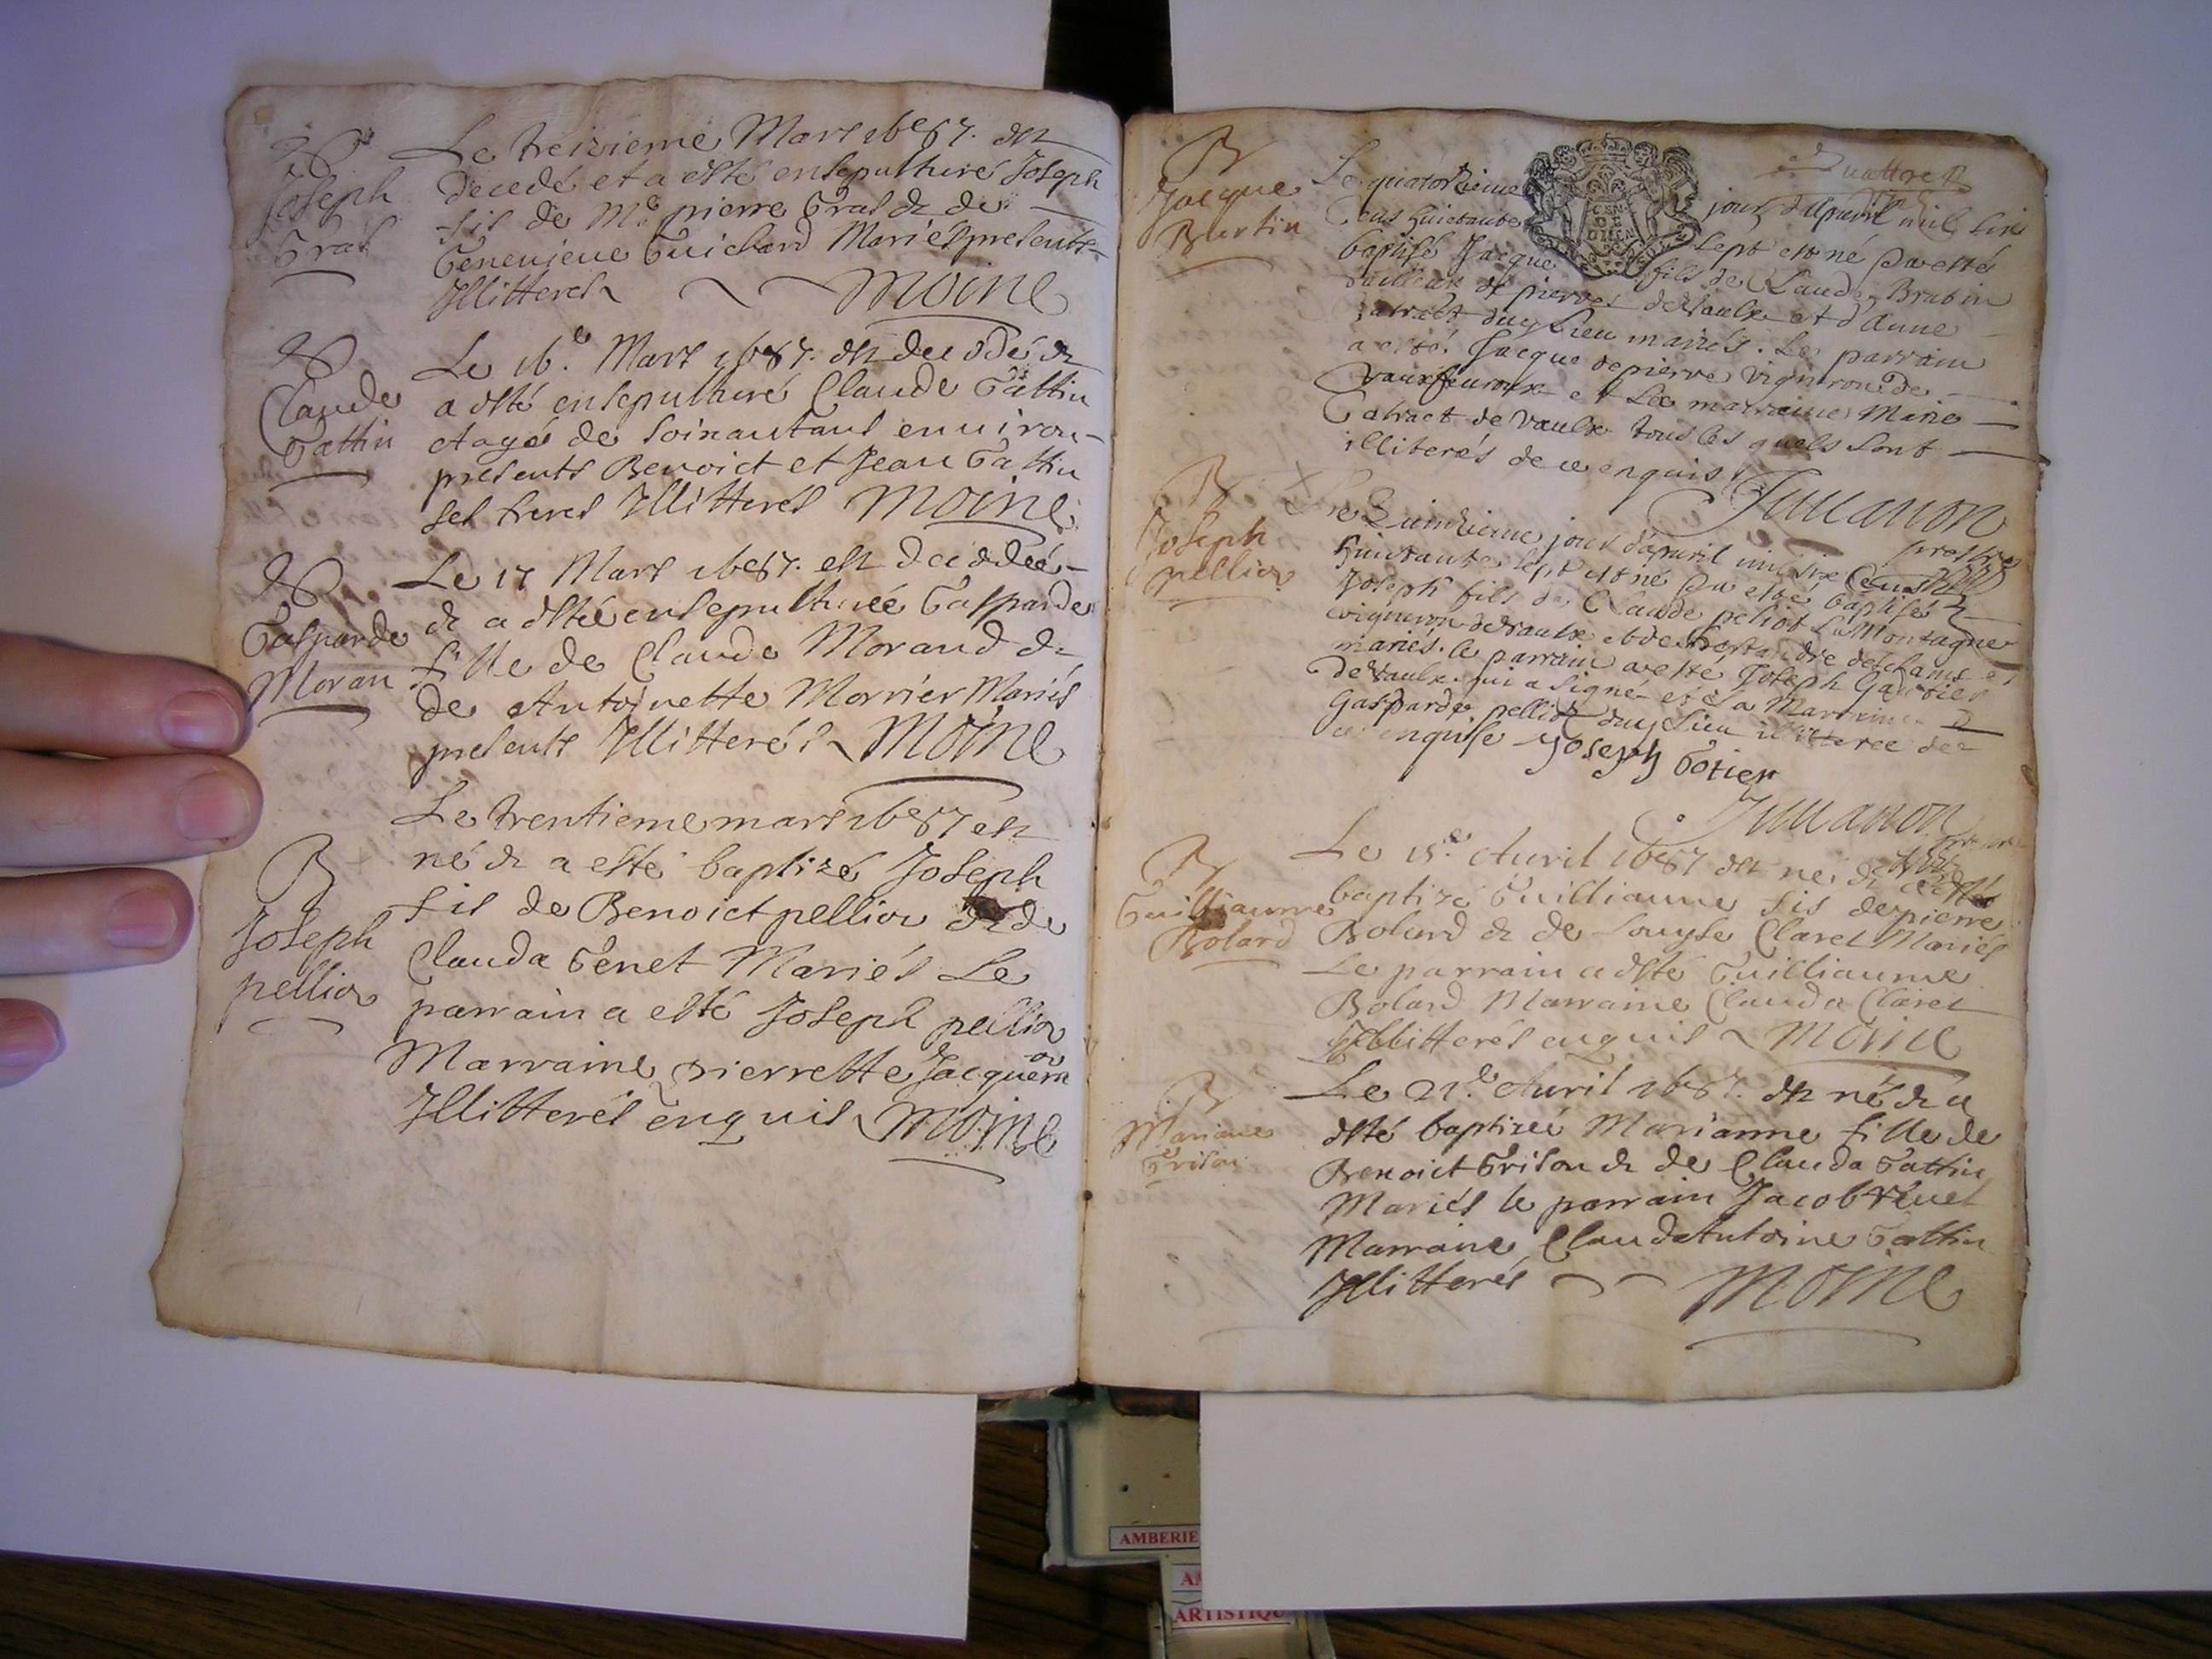 Joseph
Gras
Le treizieme Mars 1687. est
decedé et a esté ensepulturé Joseph
fils de Me pierre Gras & de
Genevieve Guichard Mariés presents
Illitterés Moine
Claude
Gattin
Le 16e Mars 1687. est decedé &
a esté ensepulturé Claude Gattin
et agé de soixante ans environ
presents Benoict et Jean Gattin
ses freres Illitterés Moine
Gasparde
Moran
Le 17 Mars 1687. est decedée
& a esté ensepulturée Gasparde
fille de Claude Morand &
de Antoinette Morrier Mariés
presents Illitterés Moine
B
Joseph
pellior
Le trentieme mars 1687 est
né & a esté baptizé Joseph
fils de Benoict pellior & de
Clauda Genet Mariés Le
parrain a esté Joseph pellior
Marraine pierrette
Illitterés enquis Moine
B
Jacque
Burtin
Quattre D
GEN
DE
DIION
Le quatorzieme jour d'apvril mil six
cens huictante sept est né & a esté
baptisé Jacque fils de Claude
tailleur de pierres de Vaulx et d'Anne
du lieu mariés. Le parrain
a esté Jacque depierre vigneron de
et la marraine Marie
de Vaulx tous les quels sont
illiterés de ce enquis
B
Joseph
pellior
Le Quinzieme jour d'apvril mil six cens
huictante sept est né & a esté baptisé
Joseph fils de Claude peliot La Montagne
vigneron de Vaulx et de deschams
mariés. le parrain a esté Joseph
de Vaulx qui a signé et la Marraine
Gasparde pelliot du lieu illiteree de
ce enquise Joseph Gotier
B
Guilliaume
Bolard
Le 15e Avril 1687 est né & a esté
baptizé Guilliaume fils de pierre
Bolard & de Louyse Claret Mariés
Le parrain a esté Guilliaume
Bolard Marraine Clauda Claret
Illitterés enquis Moine
B
Mariane
Grison
Le 21e Avril 1687. est né & a
esté baptizée Marianne fille de
Benoict Grison & de Clauda Gattin
Mariés le parrain Jacob
Marraine Claudantoine Gattin
Illitterés Moine
AMBERIE
ARTISTIQU